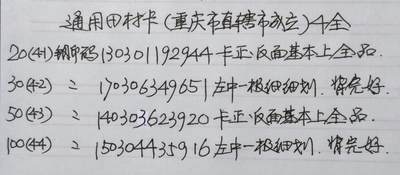 通用田村卡(重庆市直辖市成立)4全
20(4-1)钢印码130301192944卡正反面基本上全品.
30(4-2) 〃 170306349651左中一极细细划.背完好.
50(4-3) 〃 140303623920卡正反面基本上全品.
100(4-4) 〃 150304435916左中一极细划.背完好.